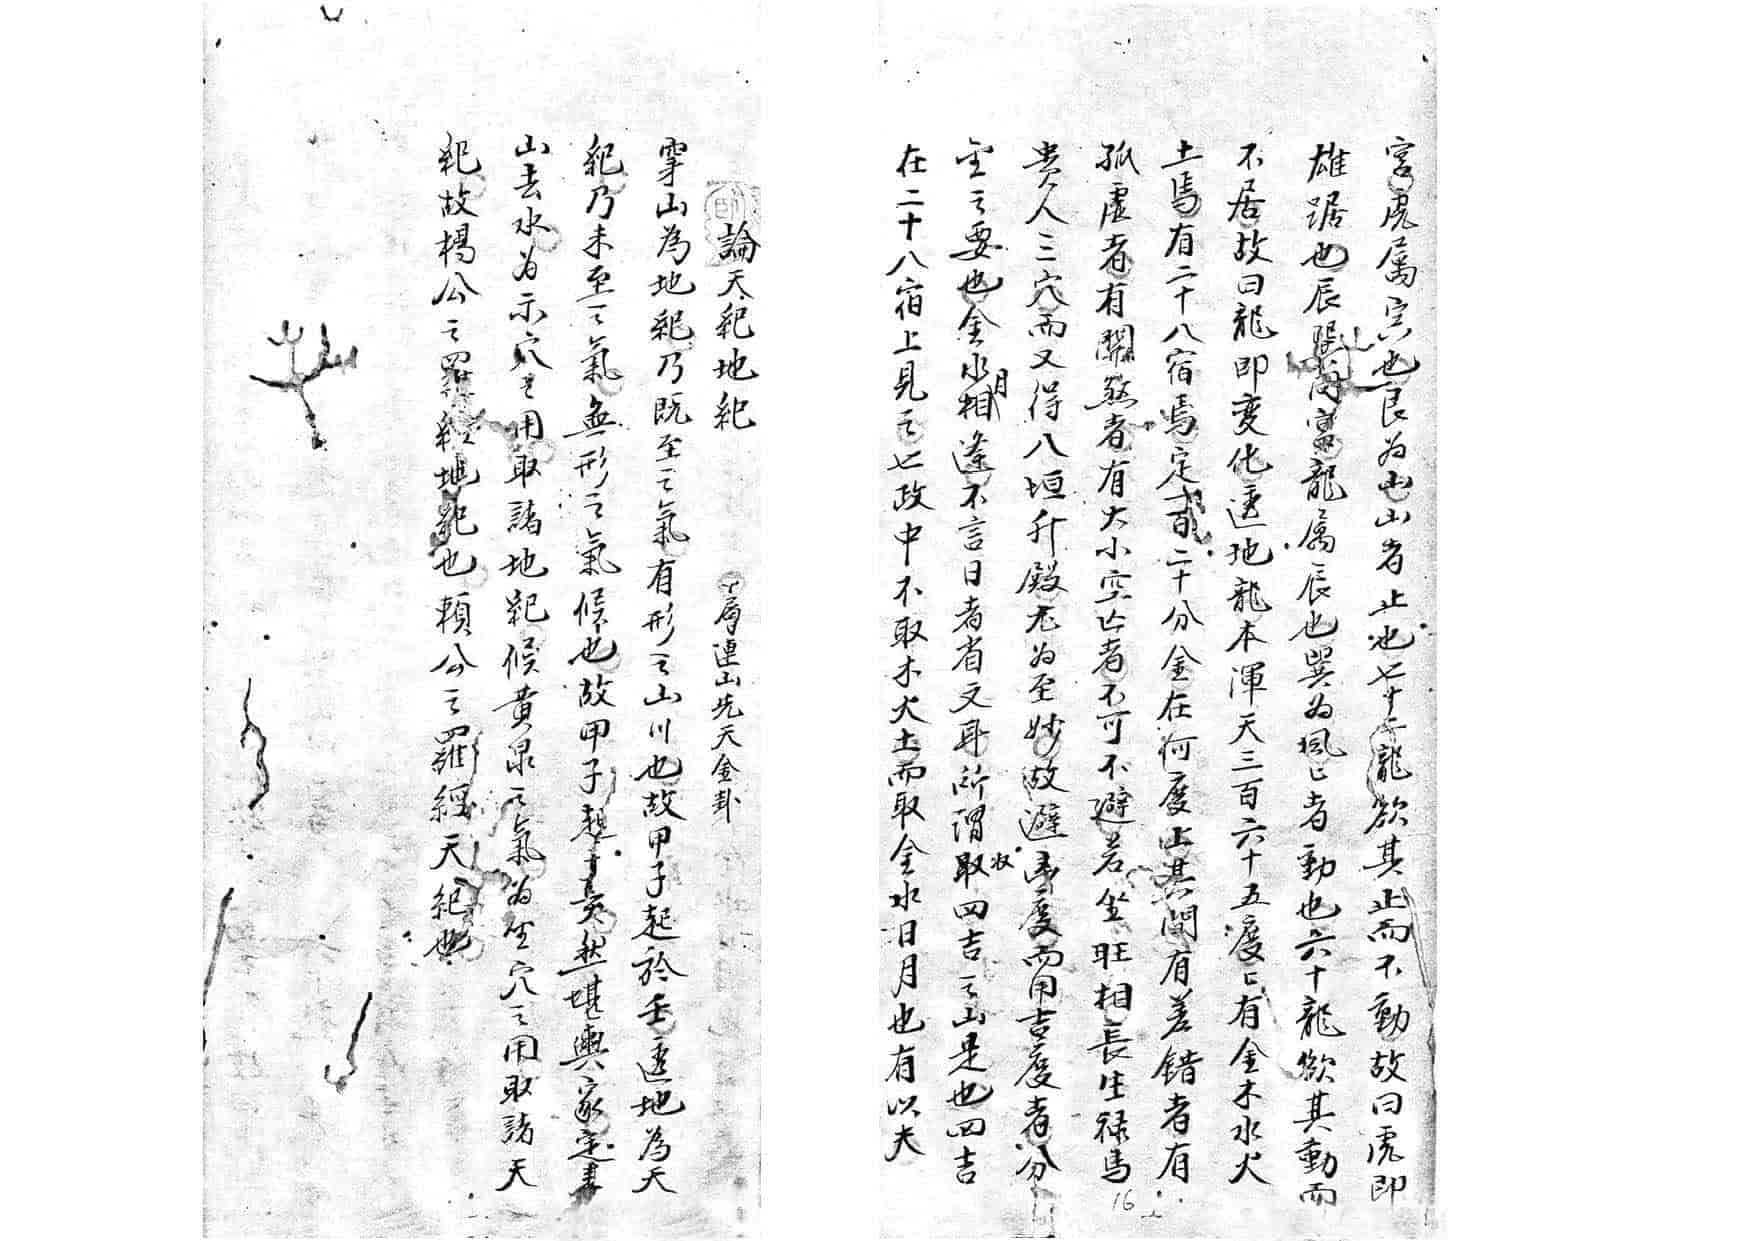 宮虎屬寅也艮為山山者止也七十二龍欲其止而不動故曰虎即
雄踞也辰巽同宮龍屬辰也巽為風巳者動也六十龍欲其動而
不居故曰龍即变化透地龍本渾天三百六十五度巳有金木水火
土焉有二十八宿焉定百二十分金在何度上其間有差錯者有
孤虛者有關煞者有大小空亡者不可不避若坐旺相長生禄馬
貴人三穴而又得八垣升殿尤為至妙故避凶度而用吉度者分
金之要也金水月相逢不言日者省文耳所謂取四吉之山是也四吉
在二十八宿上見之七政中不取木火土而取金水日月也有以夫
論天紀地紀
屬連山先天金卦
穿山為地紀乃既至之氣有形之山川也故甲子起於壬透地為天
紀乃未至之氣無形之氣候也故甲子起亥然堪輿家定
山去水为示穴之用取諸地紀候黃泉之氣为坐穴之用取諸天
紀故楊公之羅經地紀也賴公之羅經天紀也
16